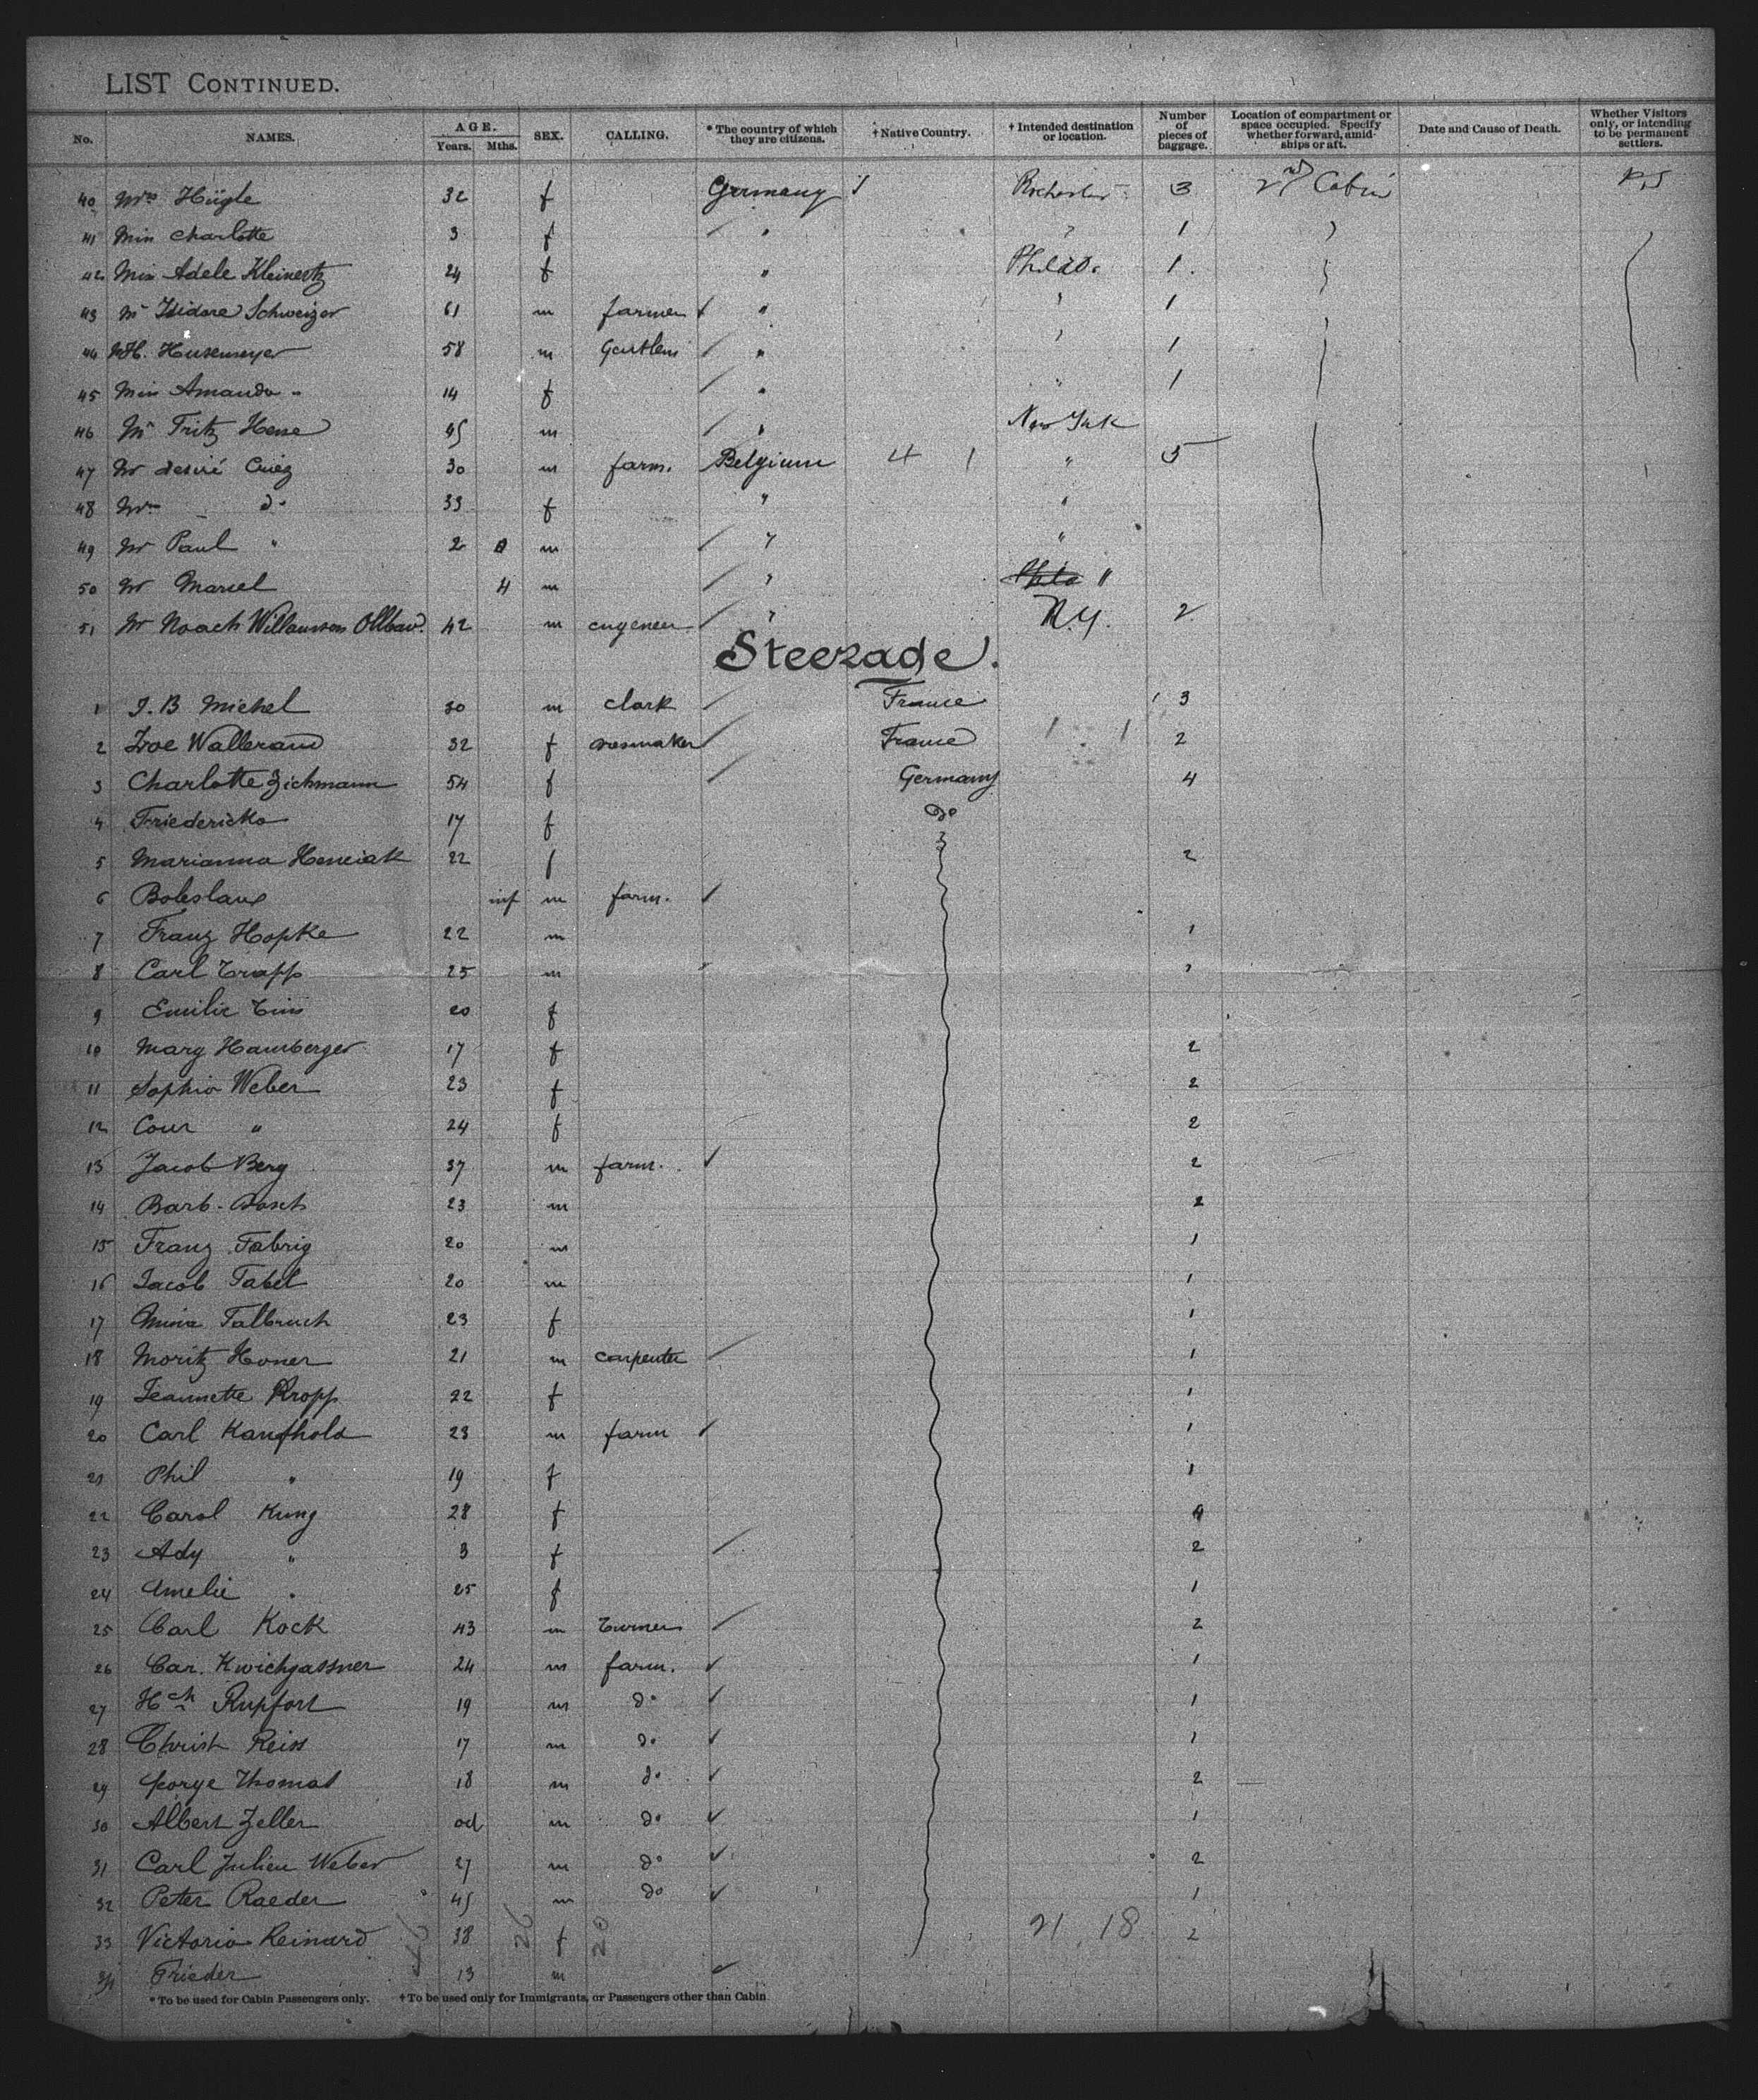 LIST CONTINUED.
No. NAMES. AGE. Years. Mths. SEX. CALLING. * The country of which they are citizens. † Native Country. † Intended destination or location. Number of pieces of baggage. Location of compartment or space occupied. Specify whether forward, amidships or aft. Date and Cause of Death. Whether Visitors only, or intending to be permanent settlers.
40 Mrs Hügle 32 f Germany Rochester 3 2nd Cabin
41 Miss Charlotte 3 f " " 1
42 Miss Adele Kleinertz 24 f " Philad. 1.
43 Mr Isidore Schweizer 61 m farmer " " 1
44 Mr H. Husemeyer 58 m Gentlem " " 1
45 Miss Amanda " 14 f " " 1
46 Mr Fritz Hesse 45 m " New York
47 Mr desiré Cuiez 30 m farm. Belgium 4 1 " 5
48 Mrs do 33 f " "
49 Mr Paul " 2 m " "
50 Mr Marcel 4 m " Phila "
51 Mr Noach 42 m engeneer " N.Y. 2
Steerage.
1 J. B Michel 30 m clark France 3
2 Zoe Wallerand 32 f dresmaker France 2
3 Charlotte Zichmann 54 f Germany 4
4 Friedericka 17 f do
5 Marianna Henciak 22 f 2
6 Boleslaus inf m farm.
7 Franz Hopke 22 m 1
8 Carl Trapp 25 m 1
9 Emilie 20 f
10 Mary Hamberger 17 f 2
11 Sophia Weber 23 f 2
12 Cour " 24 f 2
13 Jacob Berg 37 m farm. 2
14 Barb. Bosch 23 m 2
15 Franz Fabrig 20 m 1
16 Jacob Tabel 20 m 1
17 Mina Talbruch 23 f 1
18 Moritz Honer 21 m carpenter 1
19 Jeannette Kropp 22 f 1
20 Carl Kaufhold 23 m farm 1
21 Phil " 19 f 1
22 Carol Kung 28 f 4
23 Ady " 3 f 2
24 Amelie " 25 f 1
25 Carl Kock 43 m Turner 2
26 Car. Kwichgassner 24 m farm. 1
27 Hch Rupfort 19 m do 1
28 Christ Reiss 17 m do 1
29 George Thomas 18 m do 2
30 Albert Zeller m do 1
31 Carl Julien Weber 27 m do 2
32 Peter Raeder 45 m do 1
33 Victoria Reinard 38 f 21 18 2
34 Frieder 13 m
26 20
* To be used for Cabin Passengers only. † To be used only for Immigrants, or Passengers other than Cabin